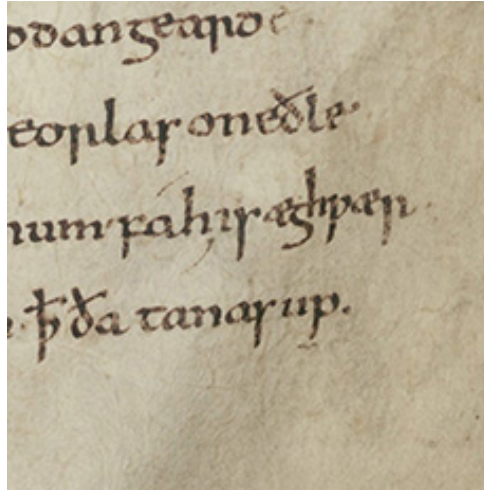 odangeard
eorlas oneðle·
num· fáh is æghƿær
ꝥ ða tanas up.